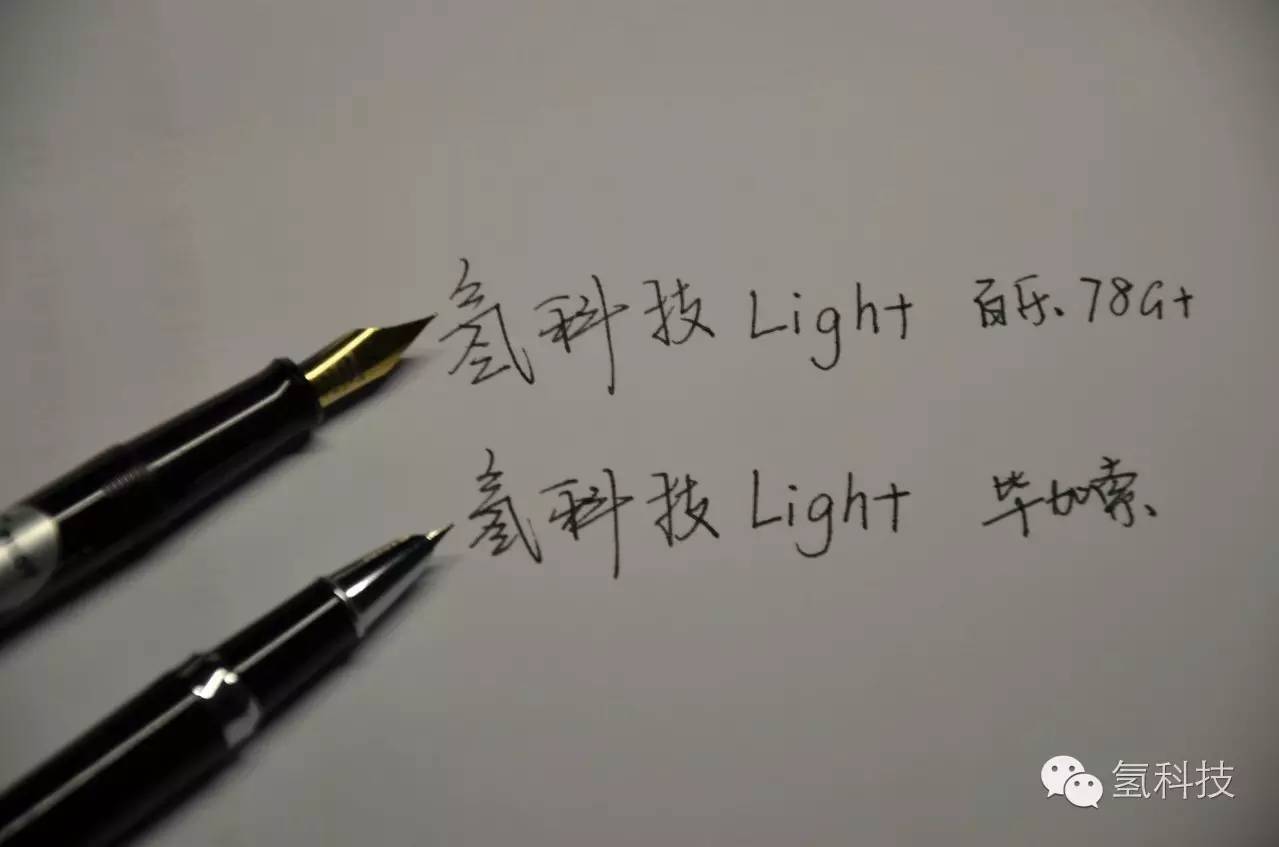 氢科技 Light 百乐 78G+
氢科技 Light 毕加索
氢科技